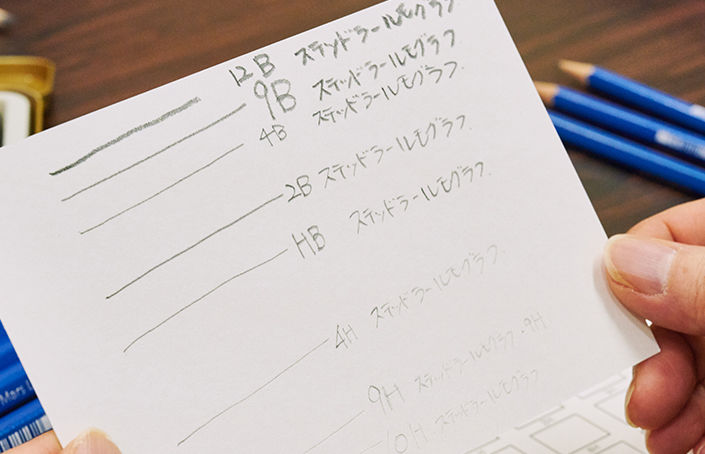 12B ステッドラールモグラフ
9B ステッドラールモグラフ.
4B ステッドラールモグラフ.
2B ステッドラールモグラフ.
HB ステッドラールモグラフ.
4H ステッドラールモグラフ.
9H ステッドラールモグラフ・9H
10H ステッドラールモグラフ
Mars